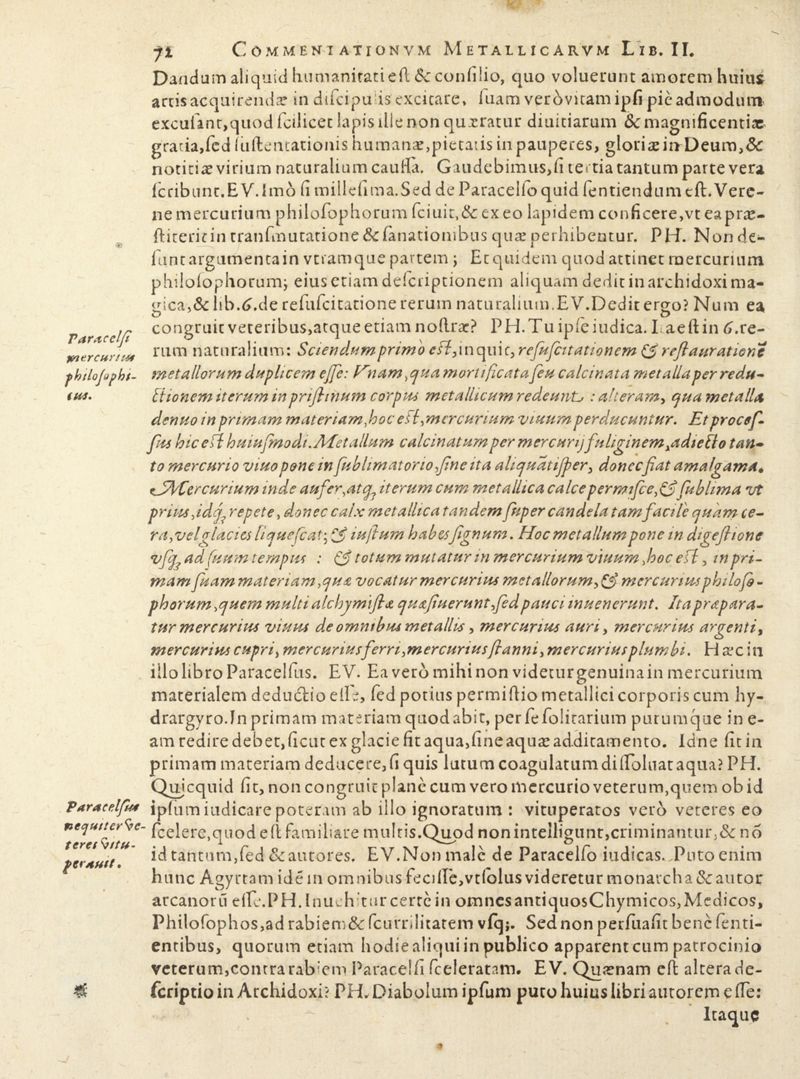 72 COMMENTATIONVM METALLICARVM LIB. II.
Dandum aliquid humanitati eſt & conſilio, quo voluerunt amorem huius
artis acquirendæ in diſcipulis excitare, ſuam verò vitam ipſi piè admodum
excuſant, quod ſcilicet lapis ille non quæratur diuitiarum & magnificentiæ
gratia, ſed ſuſtentationis humanæ, pietatis in pauperes, gloriæ in Deum, &
notitiæ virium naturalium cauſſa. Gaudebimus, ſi tertia tantum parte vera
ſcribunt. EV. Imò ſi milleſima. Sed de Paracelſo quid ſentiendum eſt. Vere-
ne mercurium philoſophorum ſciuit, & ex eo lapidem conficere, vt ea præ-
ſtiterit in tranſmutatione & ſanationibus quæ perhibentur. PH. Non de-
ſunt argumenta in vtramque partem; Et quidem quod attinet mercurium
philoſophorum; eius etiam deſcriptionem aliquam dedit in archidoxi ma-
gica, & lib. 6. de reſuſcitatione rerum naturalium. EV. Dedit ergo? Num ea
congruit veteribus, atque etiam noſtræ? PH. Tu ipſe iudica. Ita eſt in 6. re-
Paracelſi
mercurius
philoſophi-
cus.
rum naturalium: Sciendum primò eſt, inquit, reſuſcitationem & reſtaurationē
metallorum duplicem eſſe: Vnam, qua mortificata ſeu calcinata metalla per redu-
ctionem iterum in priſtinum corpus metallicum redeunt : alteram, qua metalla
denuo in primam materiam, hoc eſt, mercurium viuum perducuntur. Et proceſ-
ſus hic eſt huiuſmodi. Metallum calcinatum per mercurij fuliginem, adiecto tan-
to mercurio viuo pone in ſublimatorio, ſine ita aliquātiſper, donec fiat amalgama.
Mercurium inde aufer, atq; iterum cum metallica calce permiſce, & ſublima vt
prius, idq; repete, donec calx metallica tandem ſuper candela tam facilè quàm ce-
ra, vel glacies liqueſcat; & iuſtum habes ſignum. Hoc metallum pone in digeſtione
vſq; ad ſuum tempus : & totum mutatur in mercurium viuum, hoc eſt, in pri-
mam ſuam materiam, quæ vocatur mercurius metallorum, & mercurius philoſo-
phorum, quem multi alchymiſtæ quæſiuerunt, ſed pauci inuenerunt. Ita præpara-
tur mercurius viuus de omnibus metallis, mercurius auri, mercurius argenti,
mercurius cupri, mercurius ferri, mercurius ſtanni, mercurius plumbi. Hæc in
illo libro Paracelſus. EV. Ea verò mihi non videtur genuina in mercurium
materialem deductio eſſe, ſed potius permiſtio metallici corporis cum hy-
drargyro. In primam materiam quod abit, per ſe ſolitarium purumque in e-
am redire debet, ſicut ex glacie fit aqua, ſine aquæ additamento. Idne ſit in
primam materiam deducere, ſi quis lutum coagulatum diſſoluat aqua? PH.
Quicquid ſit, non congruit planè cum vero mercurio veterum, quem ob id
Paracelſus
nequiter ve-
teres vitu-
perauit.
ipſum iudicare poteram ab illo ignoratum : vituperatos verò veteres eo
ſcelere, quod eſt familiare multis. Quod non intelligunt, criminantur, & nō
id tantum, ſed & autores. EV. Non malè de Paracelſo iudicas. Puto enim
hunc Agyrtam idē in omnibus feciſſe, vt ſolus videretur monarcha & autor
arcanorū eſſe. PH. Inuehitur certè in omnes antiquos Chymicos, Medicos,
Philoſophos, ad rabiem & ſcurrilitatem vſq;. Sed non perſuaſit benè ſenti-
entibus, quorum etiam hodie aliqui in publico apparent cum patrocinio
veterum, contra rabiem Paracelſi ſceleratam. EV. Quænam eſt altera de-
ſcriptio in Archidoxi? PH. Diabolum ipſum puto huius libri autorem eſſe:
Itaque